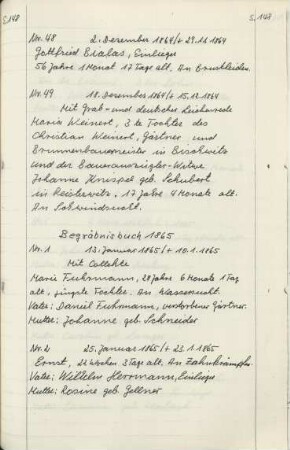 S. 148
S. 147
Nr. 48 2. Dezember 1864/+ 29.11.1864
Gottfried Bialas, Einlieger
56 Jahre 1 Monat 17 Tage alt. An Brustleiden.
Nr. 49 18. Dezember 1864/+ 15.12.1864
Mit Grab- und deutscher Leichenrede
Maria Weinert, 3te Tochter des
Christian Weinert, Gärtner und
Brunnenbaumeister in
und der Bauerauszügler-Witwe
Johanne Knispel geb. Schubert
in Peisterwitz, 17 Jahre 4 Monate alt.
An Schwindsucht.
Begräbnisbuch 1865
Nr. 1 13. Januar 1865/+ 10.1.1865
Mit Collekte
Marie Fuhrmann, 28 Jahre 6 Monate 1 Tag
alt, jüngste Tochter. An Wassersucht.
Vater: Daniel Fuhrmann, verstorbener Gärtner.
Mutter: Johanne geb. Schneider
Nr. 2 25. Januar 1865/+ 23.1.1865
Ernst, 22 Wochen 3 Tage alt. An Zahnkrämpfen
Vater: Wilhelm Herrmann, Einlieger
Mutter: Rosine geb. Gellner